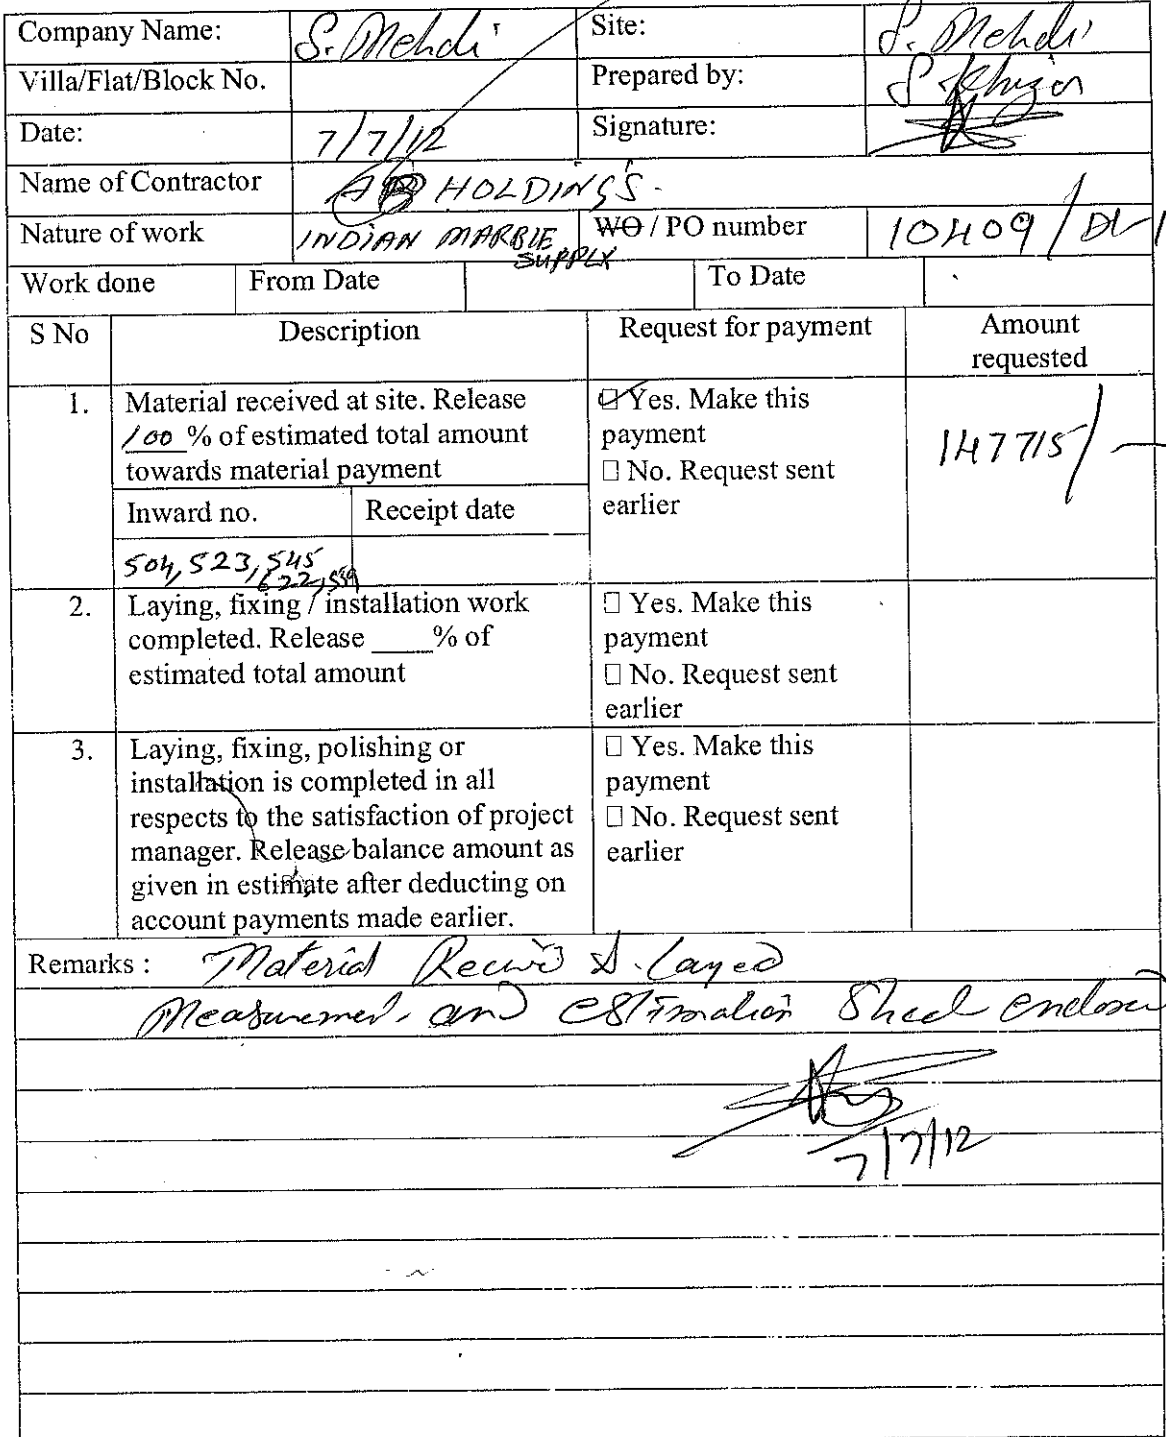 Company Name: S. Mehdi Site: S. Mehdi
Villa/Flat/Block No. Prepared by:
Date: 7/7/12 Signature:
Name of Contractor HOLDING'S.
Nature of work INDIAN MARBLE SUPPLY WO / PO number 10409/
Work done From Date To Date
S No Description Request for payment Amount requested
1. Material received at site. Release
100 % of estimated total amount
towards material payment
Inward no. Receipt date
504, 523, 545
622, 559
Yes. Make this
payment
No. Request sent
earlier
147715/-
2. Laying, fixing / installation work
completed. Release ____% of
estimated total amount
Yes. Make this
payment
No. Request sent
earlier
3. Laying, fixing, polishing or
installation is completed in all
respects to the satisfaction of project
manager. Release balance amount as
given in estimate after deducting on
account payments made earlier.
Yes. Make this
payment
No. Request sent
earlier
Remarks : Material Layed
and estimation
7/7/12